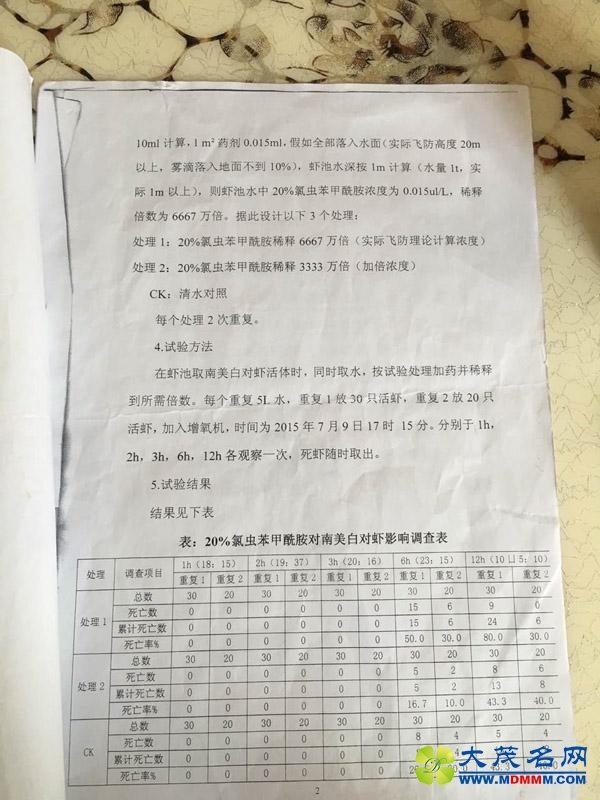 10ml 计算，1 m² 药剂 0.015ml，假如全部落入水面（实际飞防高度 20m
以上，雾滴落入地面不到 10%），虾池水深按 1m 计算（水量 1t，实
际 1m 以上），则虾池水中 20%氯虫苯甲酰胺浓度为 0.015ul/L，稀释
倍数为 6667 万倍。据此设计以下 3 个处理：
处理 1：20%氯虫苯甲酰胺稀释 6667 万倍（实际飞防理论计算浓度）
处理 2：20%氯虫苯甲酰胺稀释 3333 万倍（加倍浓度）
CK：清水对照
每个处理 2 次重复。
4.试验方法
在虾池取南美白对虾活体时，同时取水，按试验处理加药并稀释
到所需倍数。每个重复 5L 水，重复 1 放 30 只活虾，重复 2 放 20 只
活虾，加入增氧机，时间为 2015 年 7 月 9 日 17 时 15 分。分别于 1h，
2h，3h，6h，12h 各观察一次，死虾随时取出。
5.试验结果
结果见下表
表：20%氯虫苯甲酰胺对南美白对虾影响调查表
处理 调查项目 1h（18：15） 2h（19：37） 3h（20：16） 6h（23：15） 12h（10日5：10）
重复 1 重复 2 重复 1 重复 2 重复 1 重复 2 重复 1 重复 2 重复 1 重复 2
处理 1 总数 30 20 30 20 30 20 30 20 30 20
死亡数 0 0 0 0 0 0 15 6 9 0
累计死亡数 0 0 0 0 0 0 15 6 24 6
死亡率% 0 0 0 0 0 0 50.0 30.0 80.0 30.0
处理 2 总数 30 20 30 20 30 20 30 20 30 20
死亡数 0 0 0 0 0 0 5 2 8 6
累计死亡数 0 0 0 0 0 0 5 2 13 8
死亡率% 0 0 0 0 0 0 16.7 10.0 43.3 40.0
CK 总数 30 20 30 20 30 20 30 20 30 20
死亡数 0 0 0 0 0 0 8 4 5 4
累计死亡数 0 0 0 0 0 0 4
死亡率% 0 0 0 0 0 0 43.3
2
大茂名网
WWW.MDMMM.COM